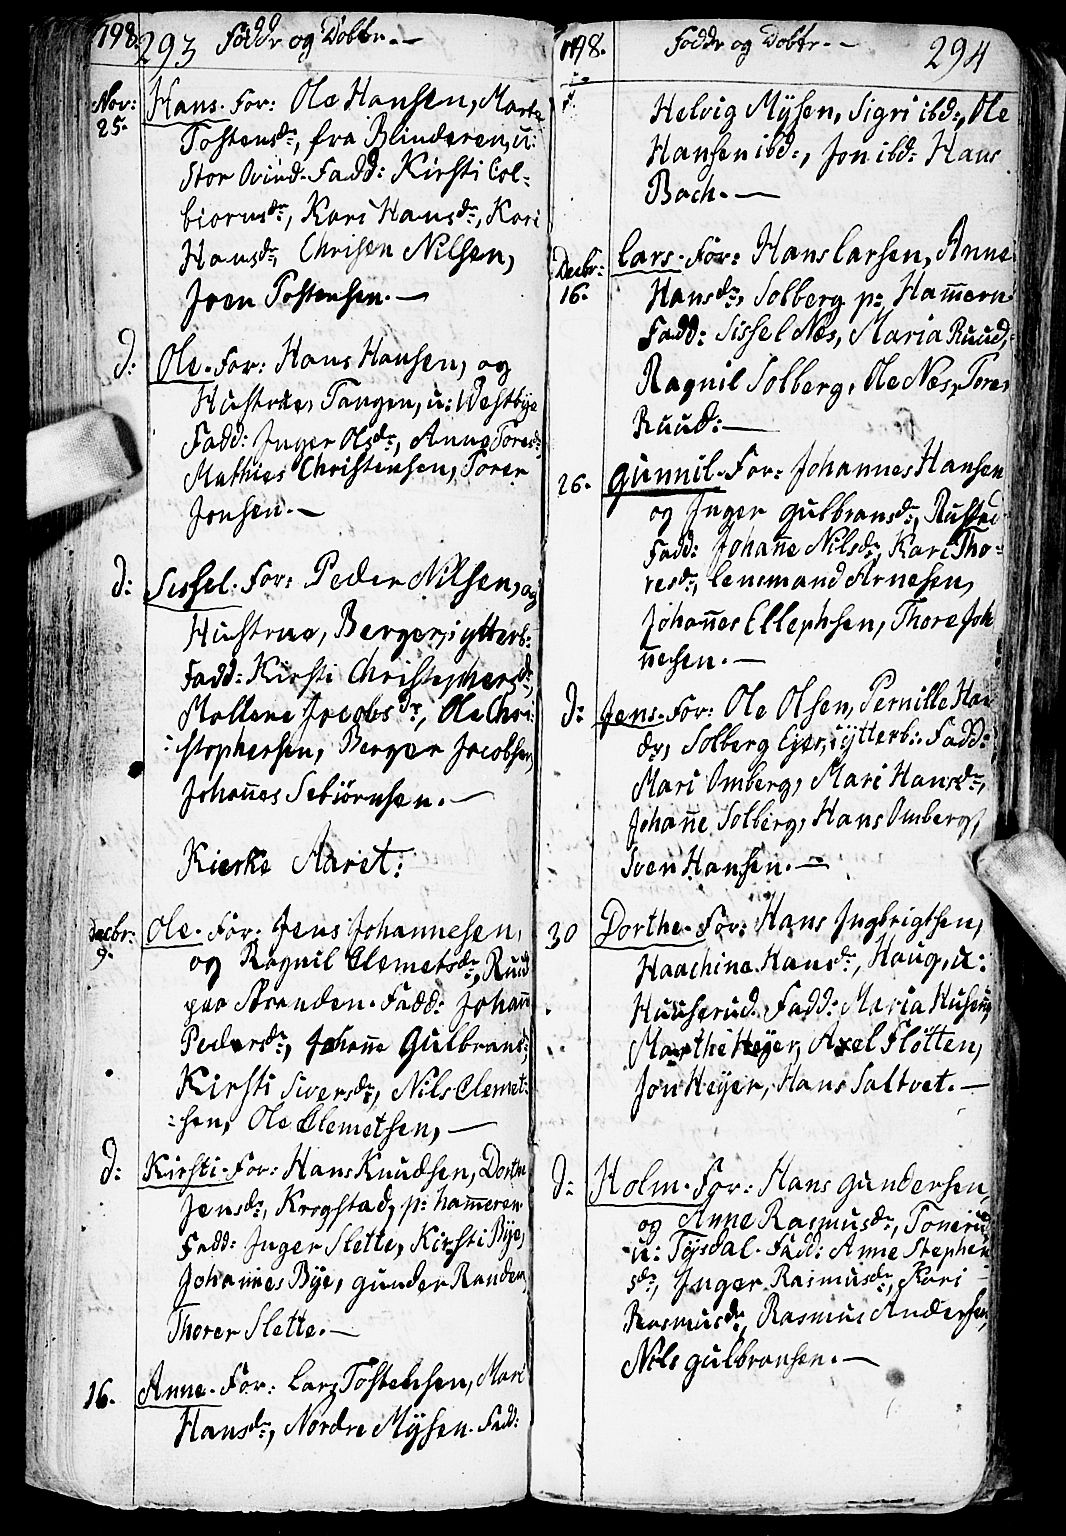 198. 293 Föddr og Döbtr. -
Nov: 25. Hans. For: Ole Hansen, Marte
Tostensdr, fra Blinderen, u:
Stor Ovind. Fadd: Kirsti Col-
biornsdr, Kari Hansdr, Kari
Hansdr, Chrisen Nilsen,
Joen Tostensen. -
d: Ole. For: Hans Hansen, og
Hustrue, Tangen, u: Westbye
Fadd: Inger Olsdr, Anne Toresdr,
Mathies Christensen, Torer
Jonsen. -
d: Sissel. For: Peder Nilsen, og
Hustrue, Berger, i ytterb:
Fadd: Kirsti Christophersdr,
Mallene Jacobsdr, Ole Chri
:stophersen, Berger Jacobsen,
Johannes Sebiörnsen. -
Kierke Aaret:
Decbr: 9. Ole. For: Jens Johannesen,
og Ragnil Clemetsdr, Ruud
paa Stranden. Fadd: Johan
Pedersdr, Johane Gulbransd,
Kirsti Siversdr, Nils Clemet:
:sen, Ole Clemetsen, -
d: Kirsti. For: Hans Knudsen, Dorthe
Jensdr, Krogstad, p: hammeren
Fadd: Inger Slette, Kirsti Bÿe,
Johannes Bÿe, gunder Randem,
Thorer Slette. -
16. Anne. For: Lars Tostensen, Mari
Hansdr, Nordre Mÿsen. Fadd:
198. Föddr og Döbtr. - 294
Helvig Mÿsen, Sigri ibd:, Ole
Hansen ibd:, Jon ibd: Hans
Bach. -
Decbr: 16. Lars. For: Hans Larsen, Anne
Hansdr, Solberg p: Hamern
Fadd: Sissel Næs, Maria Ruud,
Ragnil Solberg, Ole Næs, Torer
Ruud: -
26. Gunnil. For: Johannes Hansen
og Inger gulbransdr, Rustad
Fadd: Johane Nilsdr, Kari Tho-
resdr, Lensmand Arnesen,
Johannes Ellephsen, Thore Joh
nesen. -
d: Jens. For: Ole Olsen, Pernille Han
dr, Solberg Ejer, i ytterb: Fadd:
Mari Omberg, Mari Hansdr,
Johane Solberg, Hans Omberg,
Sven Hansen. -
30 Dorthe. For: Hans Ingbrigtsen,
Haachine Hansdr, Haug, u:
Huuserud. Fadd: Maria Husem,
Marthe Heÿer, Axel Flötten,
Jon Heÿer, Hans Saltvet. -
d: Holm. For: Hans gundersen,
og Anne Rasmusdr, Tonerud
u: Tÿsdal. Fadd: Anne Stephen
sdr, Inger Rasmusdr, Kari
Rasmusdr, Rasmus Andersen,
Nils gulbransen. -